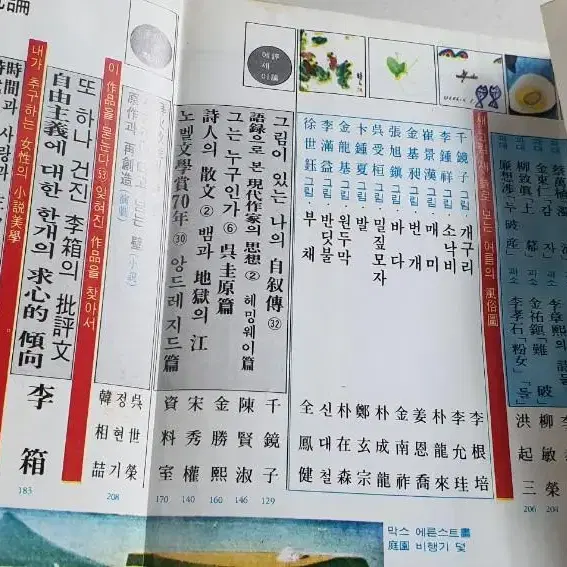 보는 여름의 風俗圖
柳致眞「土幕」
廉想涉「두 破産」
金祐鎭「難破」
李孝石「粉女」「돌
洪起三
206
204
千鏡子그림·개구리 李根培
李鍾祥그림·소나비
崔景漢그림·매미 朴龍來
金基昶그림·번개 姜恩喬
張旭鎭그림·바다 金南祚
吳受桓그림·밀짚모자 朴成龍
卞鍾夏그림·발 鄭玄宗
金龍基그림·원두막 朴在森
李滿益그림·반딧불 신대철
徐世鈺그림·부채 全鳳健
그림이 있는 나의 自敍傳 ㉜ 千鏡子 129
語錄으로 본 現代作家의 思想 ② 헤밍웨이篇 陳賢淑 146
그는 누구인가 ⑥ 吳圭原篇 金勝熙 160
詩人의 散文 ② 뱀과 地獄의 江 宋秀權 140
노벨文學賞70年 ㉚ 앙드레지드篇 資料室 170
原作과 再創造(戱曲) 吳世榮
정현기
이 作品을 묻는다 53 잊혀진 作品을 찾아서
韓相喆 208
또 하나 건진 李箱의 批評文
自由主義에 대한 한개의 求心的 傾向 李箱 183
내가 추구하는 女性의 小說美學
時間과 사랑과
막스 에른스트畵
庭園 비행기 덫